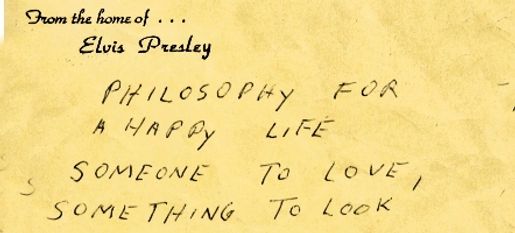 From the home of . . .
Elvis Presley
PHILOSOPHY FOR
A HAPPY LIFE
SOMEONE TO LOVE,
SOMETHING TO LOOK